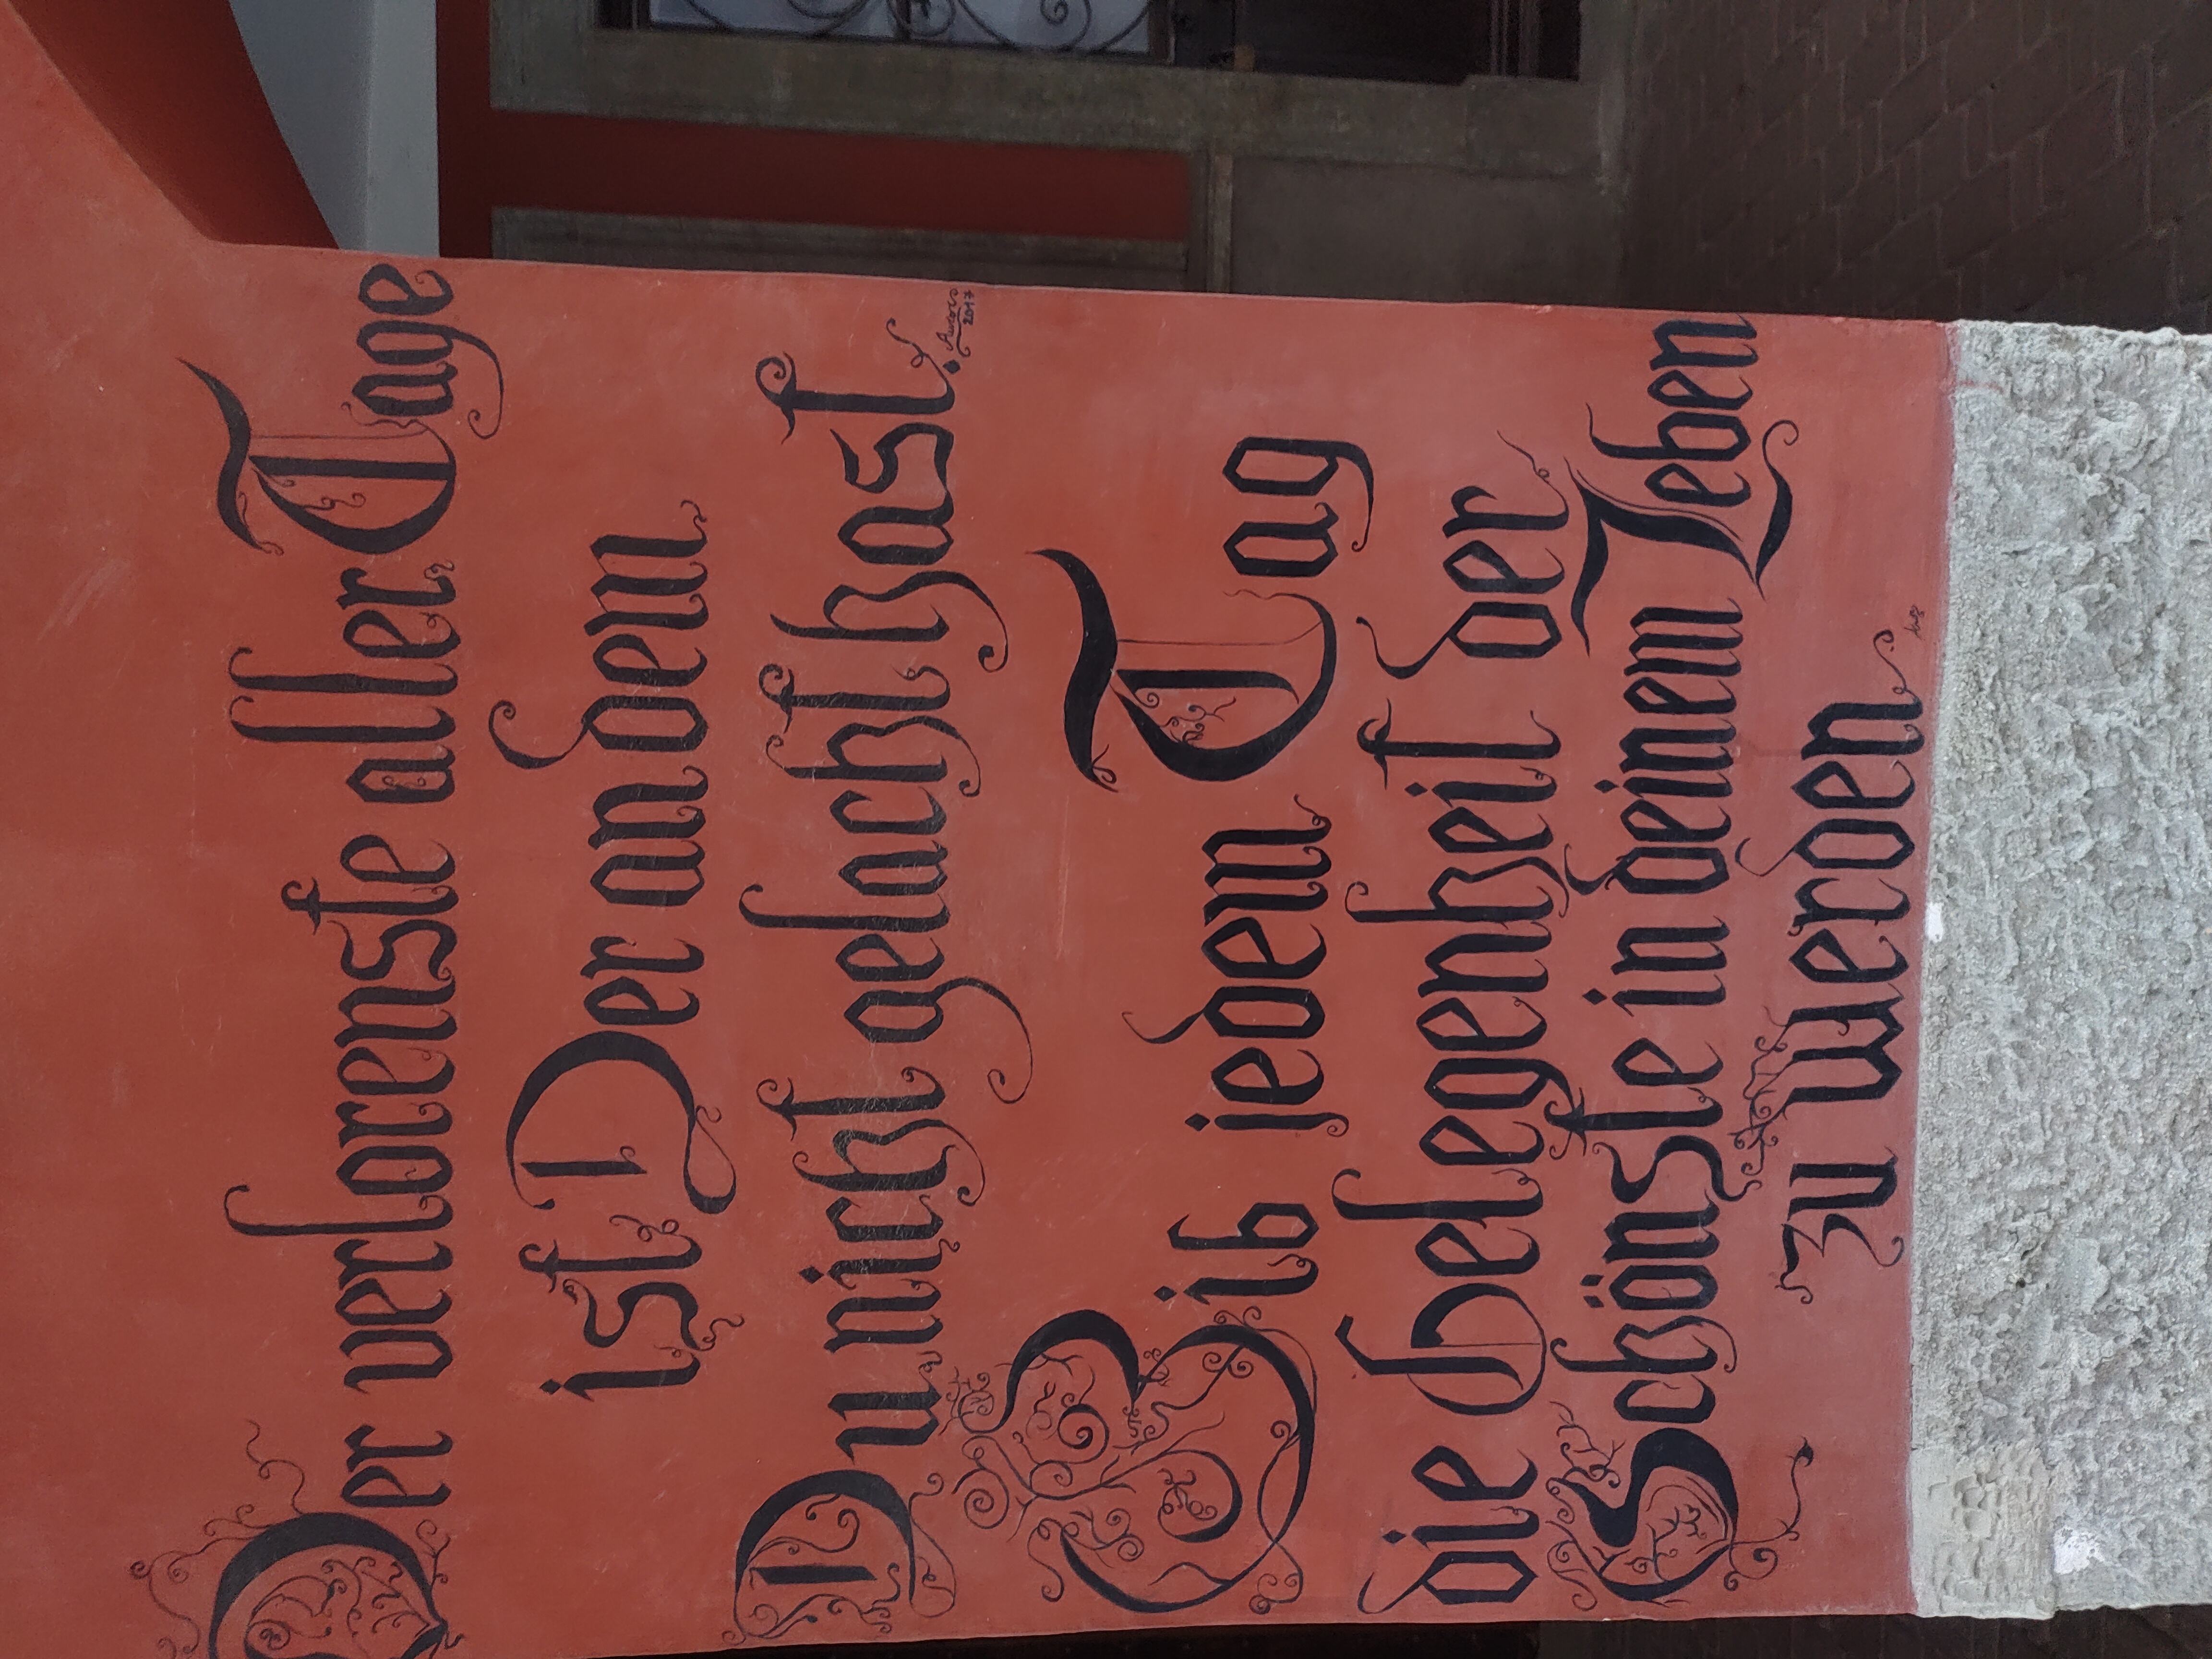 Der verlorenste aller Tage
ist Der an dem
Du nicht gelacht hast.
2017
Gib jedem Tag
die Gelegenheit der
Schönste in deinem Leben
zu werden